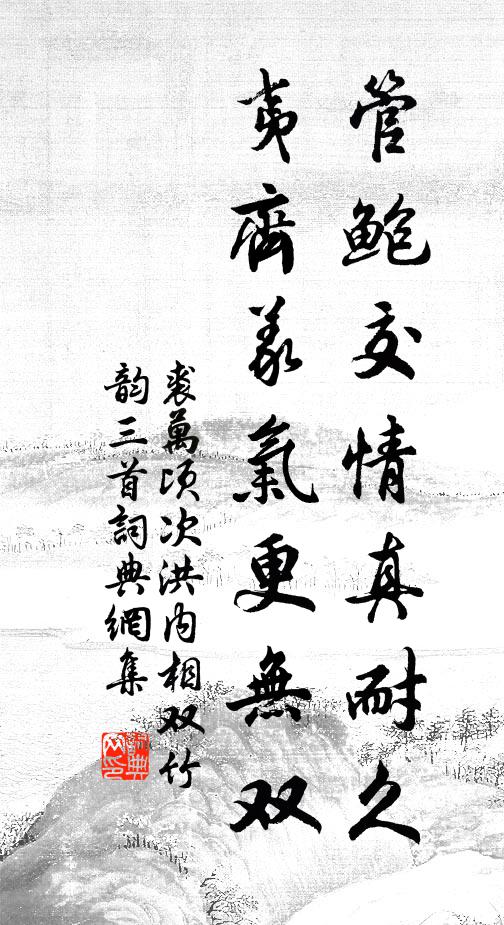 管鮑交情真耐久
夷齊義氣更無双
裘萬頃次洪内相双竹
韵三首詞典網集